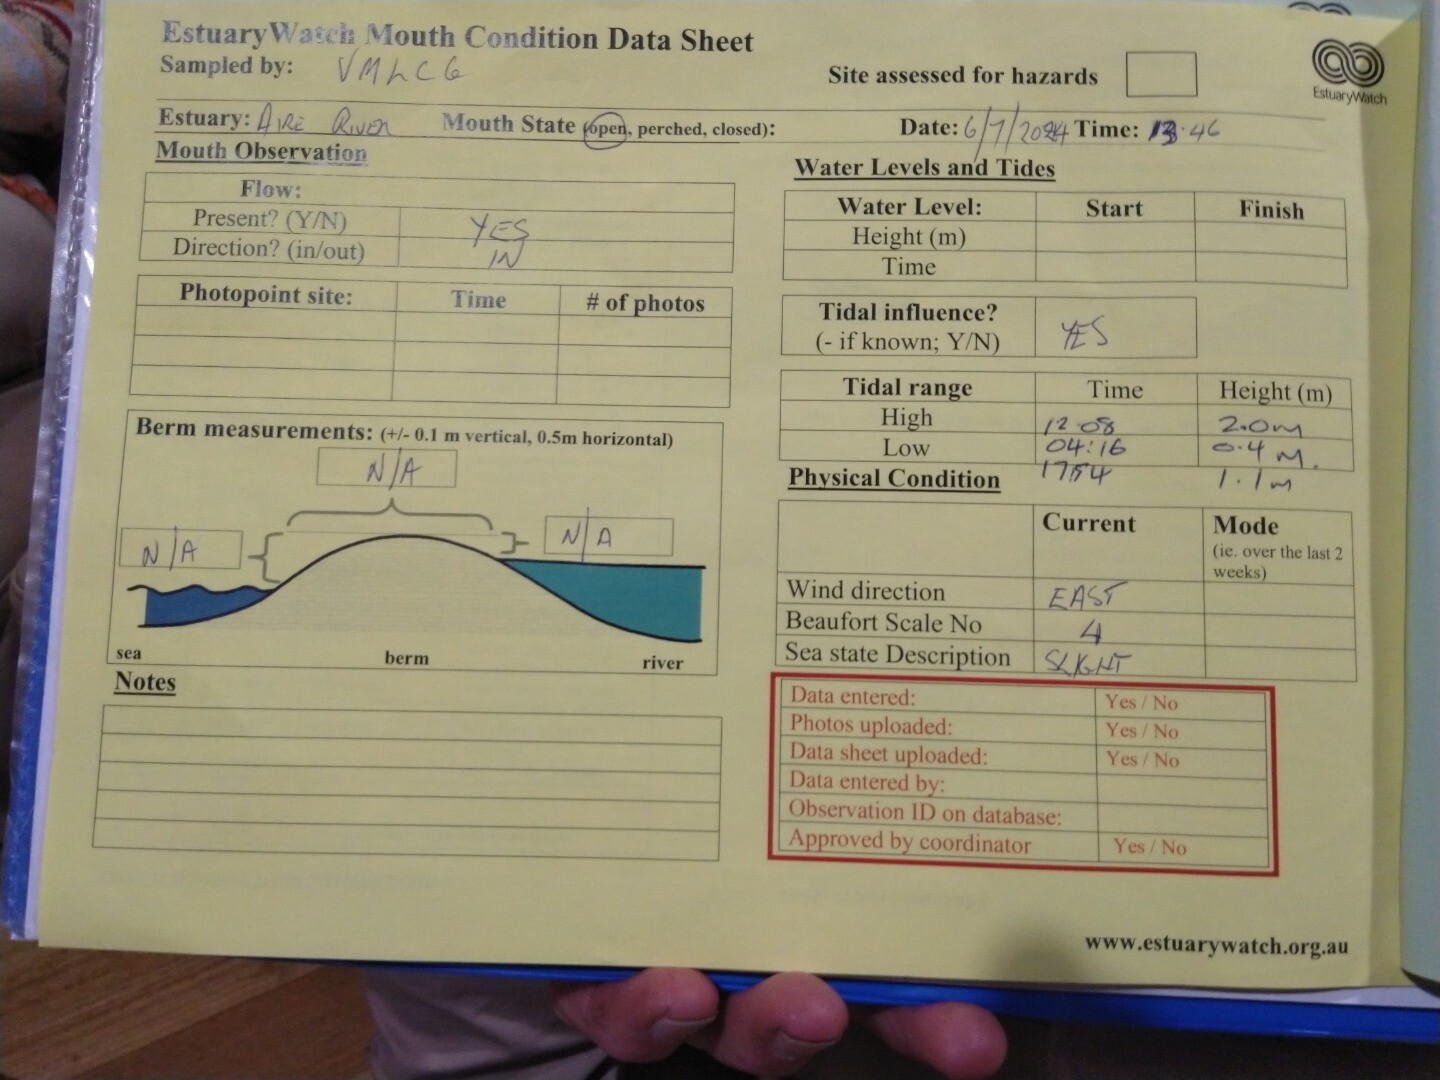 EstuaryWatch Mouth Condition Data Sheet
Sampled by: VMLCG
Site assessed for hazards
EstuaryWatch
Estuary: AIRE RIVER Mouth State (open, perched, closed): Date: 6/7/2024 Time: 13.46
Mouth Observation
Flow:
Present? (Y/N) YES
Direction? (in/out) IN
Photopoint site: Time # of photos
Berm measurements: (+/- 0.1 m vertical, 0.5m horizontal)
N/A
N/A
N/A
sea berm river
Notes
Water Levels and Tides
Water Level: Start Finish
Height (m)
Time
Tidal influence?
(- if known; Y/N) YES
Tidal range Time Height (m)
High 12.08 2.0m
Low 04:16 0.4 M.
1754 1.1m
Physical Condition
Current Mode
(ie. over the last 2
weeks)
Wind direction EAST
Beaufort Scale No 4
Sea state Description SLIGHT
Data entered: Yes / No
Photos uploaded: Yes / No
Data sheet uploaded: Yes / No
Data entered by:
Observation ID on database:
Approved by coordinator Yes / No
www.estuarywatch.org.au